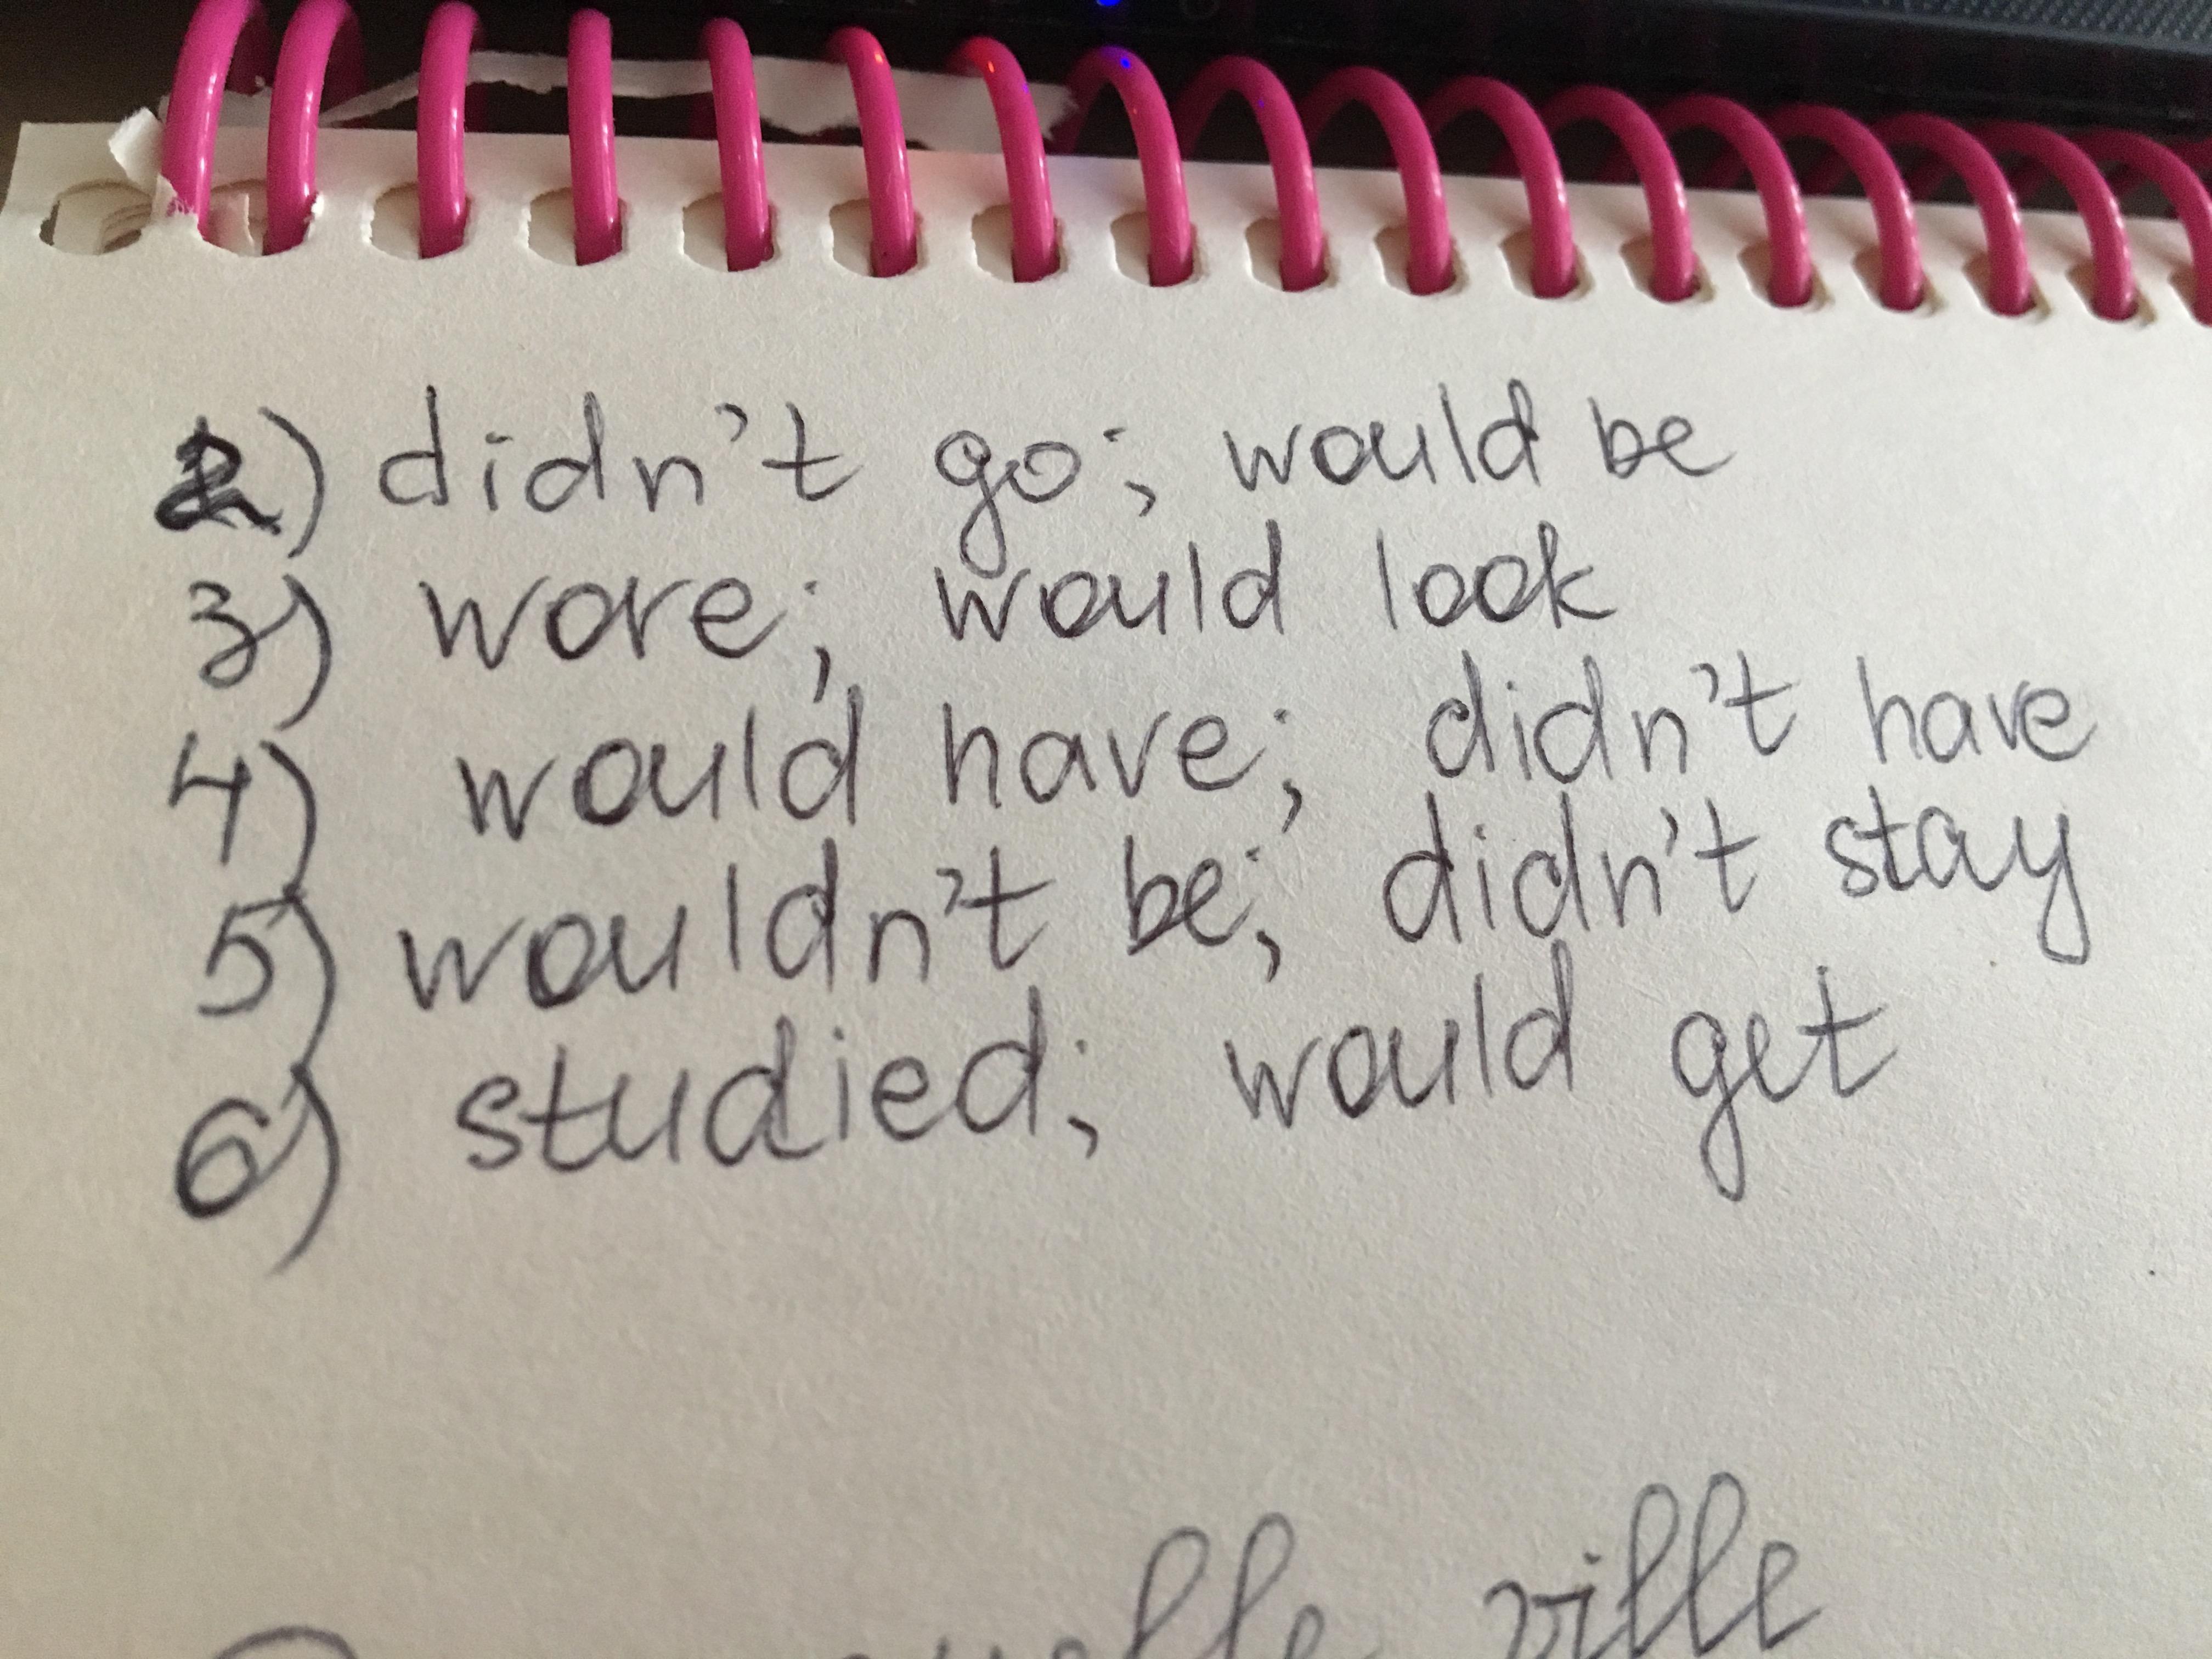 2) didn't go; would be
3) wore; would look
4) would have; didn't have
5) wouldn't be; didn't stay
6) studied; would get
ville